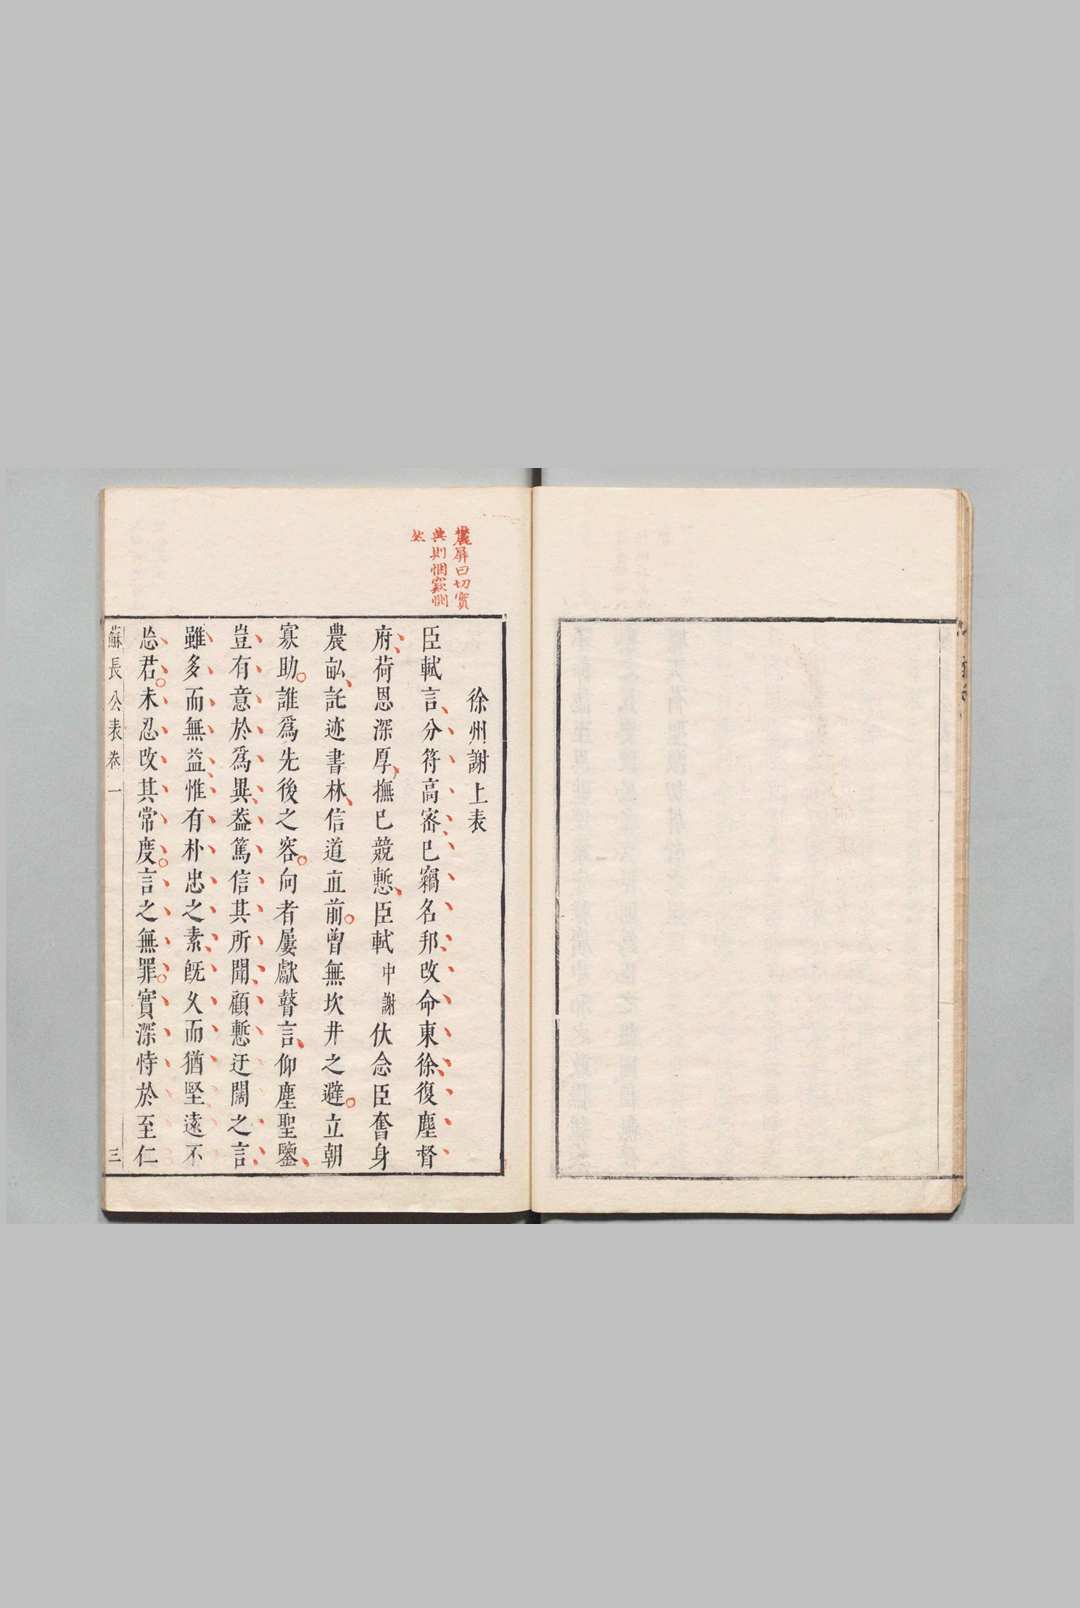 徐州謝上表
臣軾言分符高密已竊名邦改命東徐復塵督
府荷恩深厚撫己競慙臣軾中謝伏念臣奮身
農畝託迹書林信道直前曾無坎井之避立朝
寡助誰爲先後之容向者屢獻瞽言仰塵聖鑒
豈有意於爲異葢篤信其所聞顧慙迂闊之言
雖多而無益惟有朴忠之素旣久而猶堅遠不
忘君未忍改其常度言之無罪實深恃於至仁
蘇長公表卷一 三
屏曰切實
典則悃欵惻
然